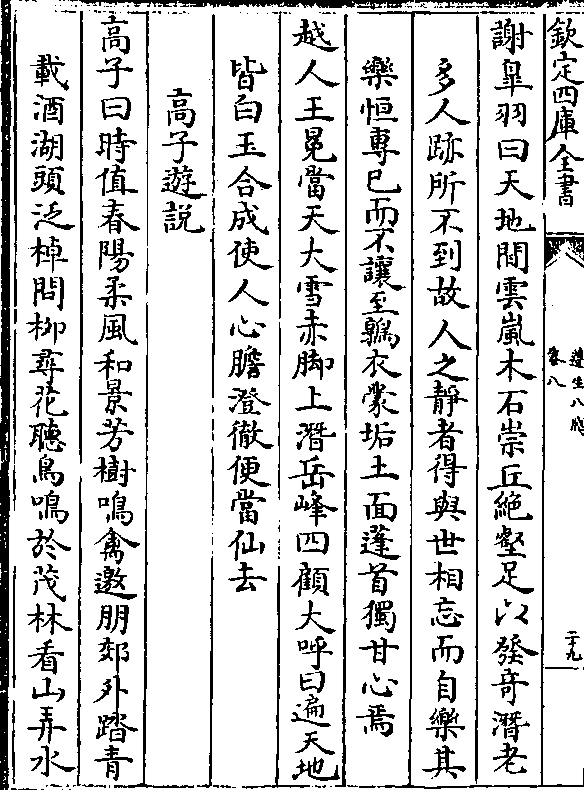 欽定四庫全書
遵生八牋
卷八
二十九
謝臯羽曰天地間雲嵐木石崇丘絶壑足以發奇潛老
多人跡所不到故人之靜者得與世相忘而自樂其
樂恒專已而不讓至鶉衣蒙垢土面蓬首獨甘心焉
越人王冕當天大雪赤脚上潛岳峰四顧大呼曰遍天地
皆白玉合成使人心膽澄徹便當仙去
高子遊説
高子曰時值春陽柔風和景芳樹鳴禽邀朋郊外踏青
載酒湖頭泛棹問栁尋花聽鳥鳴於茂林看山弄水